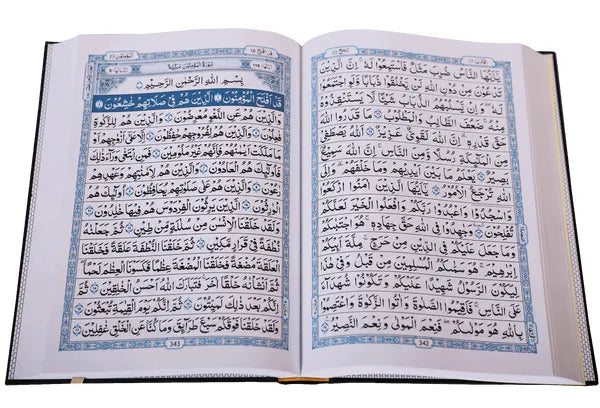 الحج ٢٢
اقترب ١٧
يٰۤاَيُّهَا النَّاسُ ضُرِبَ مَثَلٌ فَاسْتَمِعُوْا لَهٗ اِنَّ الَّذِيْنَ
تَدْعُوْنَ مِنْ دُوْنِ اللّٰهِ لَنْ يَّخْلُقُوْا ذُبَابًا وَّلَوِ اجْتَمَعُوْا
لَهٗ وَاِنْ يَّسْلُبْهُمُ الذُّبَابُ شَيْـًٔا لَّا يَسْتَنْقِذُوْهُ
مِنْهُ ضَعُفَ الطَّالِبُ وَالْمَطْلُوْبُ مَا قَدَرُوا اللّٰهَ
حَقَّ قَدْرِهٖ اِنَّ اللّٰهَ لَقَوِيٌّ عَزِيْزٌ اَللّٰهُ يَصْطَفِيْ
مِنَ الْمَلٰٓئِكَةِ رُسُلًا وَّمِنَ النَّاسِ اِنَّ اللّٰهَ سَمِيْعٌۢ
بَصِيْرٌ يَعْلَمُ مَا بَيْنَ اَيْدِيْهِمْ وَمَا خَلْفَهُمْ وَاِلَى
اللّٰهِ تُرْجَعُ الْاُمُوْرُ يٰۤاَيُّهَا الَّذِيْنَ اٰمَنُوا ارْكَعُوْا
وَاسْجُدُوْا وَاعْبُدُوْا رَبَّكُمْ وَافْعَلُوا الْخَيْرَ لَعَلَّكُمْ
تُفْلِحُوْنَ وَجَاهِدُوْا فِي اللّٰهِ حَقَّ جِهَادِهٖ هُوَ اجْتَبٰىكُمْ
وَمَا جَعَلَ عَلَيْكُمْ فِي الدِّيْنِ مِنْ حَرَجٍ مِلَّةَ اَبِيْكُمْ
اِبْرٰهِيْمَ هُوَ سَمّٰىكُمُ الْمُسْلِمِيْنَ مِنْ قَبْلُ وَفِيْ هٰذَا
لِيَكُوْنَ الرَّسُوْلُ شَهِيْدًا عَلَيْكُمْ وَتَكُوْنُوْا شُهَدَآءَ
عَلَى النَّاسِ فَاَقِيْمُوا الصَّلٰوةَ وَاٰتُوا الزَّكٰوةَ وَاعْتَصِمُوْا
بِاللّٰهِ هُوَ مَوْلٰىكُمْ فَنِعْمَ الْمَوْلٰى وَنِعْمَ النَّصِيْرُ
342
المؤمنون ٢٣
قد افلح ١٨
سُوْرَةُ الْمُؤْمِنُوْنَ مَكِّيَّةٌ
بِسْمِ اللّٰهِ الرَّحْمٰنِ الرَّحِيْمِ
قَدْ اَفْلَحَ الْمُؤْمِنُوْنَ الَّذِيْنَ هُمْ فِيْ صَلَاتِهِمْ خٰشِعُوْنَ
وَالَّذِيْنَ هُمْ عَنِ اللَّغْوِ مُعْرِضُوْنَ وَالَّذِيْنَ هُمْ لِلزَّكٰوةِ
فٰعِلُوْنَ وَالَّذِيْنَ هُمْ لِفُرُوْجِهِمْ حٰفِظُوْنَ اِلَّا عَلٰٓى اَزْوَاجِهِمْ اَوْ
مَا مَلَكَتْ اَيْمَانُهُمْ فَاِنَّهُمْ غَيْرُ مَلُوْمِيْنَ فَمَنِ ابْتَغٰى وَرَآءَ ذٰلِكَ
فَاُولٰٓئِكَ هُمُ الْعٰدُوْنَ وَالَّذِيْنَ هُمْ لِاَمٰنٰتِهِمْ وَعَهْدِهِمْ
رٰعُوْنَ وَالَّذِيْنَ هُمْ عَلٰى صَلَوٰتِهِمْ يُحَافِظُوْنَ اُولٰٓئِكَ هُمُ
الْوٰرِثُوْنَ الَّذِيْنَ يَرِثُوْنَ الْفِرْدَوْسَ هُمْ فِيْهَا خٰلِدُوْنَ
وَلَقَدْ خَلَقْنَا الْاِنْسَانَ مِنْ سُلٰلَةٍ مِّنْ طِيْنٍ ثُمَّ جَعَلْنٰهُ
نُطْفَةً فِيْ قَرَارٍ مَّكِيْنٍ ثُمَّ خَلَقْنَا النُّطْفَةَ عَلَقَةً فَخَلَقْنَا
الْعَلَقَةَ مُضْغَةً فَخَلَقْنَا الْمُضْغَةَ عِظٰمًا فَكَسَوْنَا الْعِظٰمَ لَحْمًا
ثُمَّ اَنْشَاْنٰهُ خَلْقًا اٰخَرَ فَتَبٰرَكَ اللّٰهُ اَحْسَنُ الْخٰلِقِيْنَ ثُمَّ
اِنَّكُمْ بَعْدَ ذٰلِكَ لَمَيِّتُوْنَ ثُمَّ اِنَّكُمْ يَوْمَ الْقِيٰمَةِ تُبْعَثُوْنَ
وَلَقَدْ خَلَقْنَا فَوْقَكُمْ سَبْعَ طَرَآئِقَ وَمَا كُنَّا عَنِ الْخَلْقِ غٰفِلِيْنَ
343